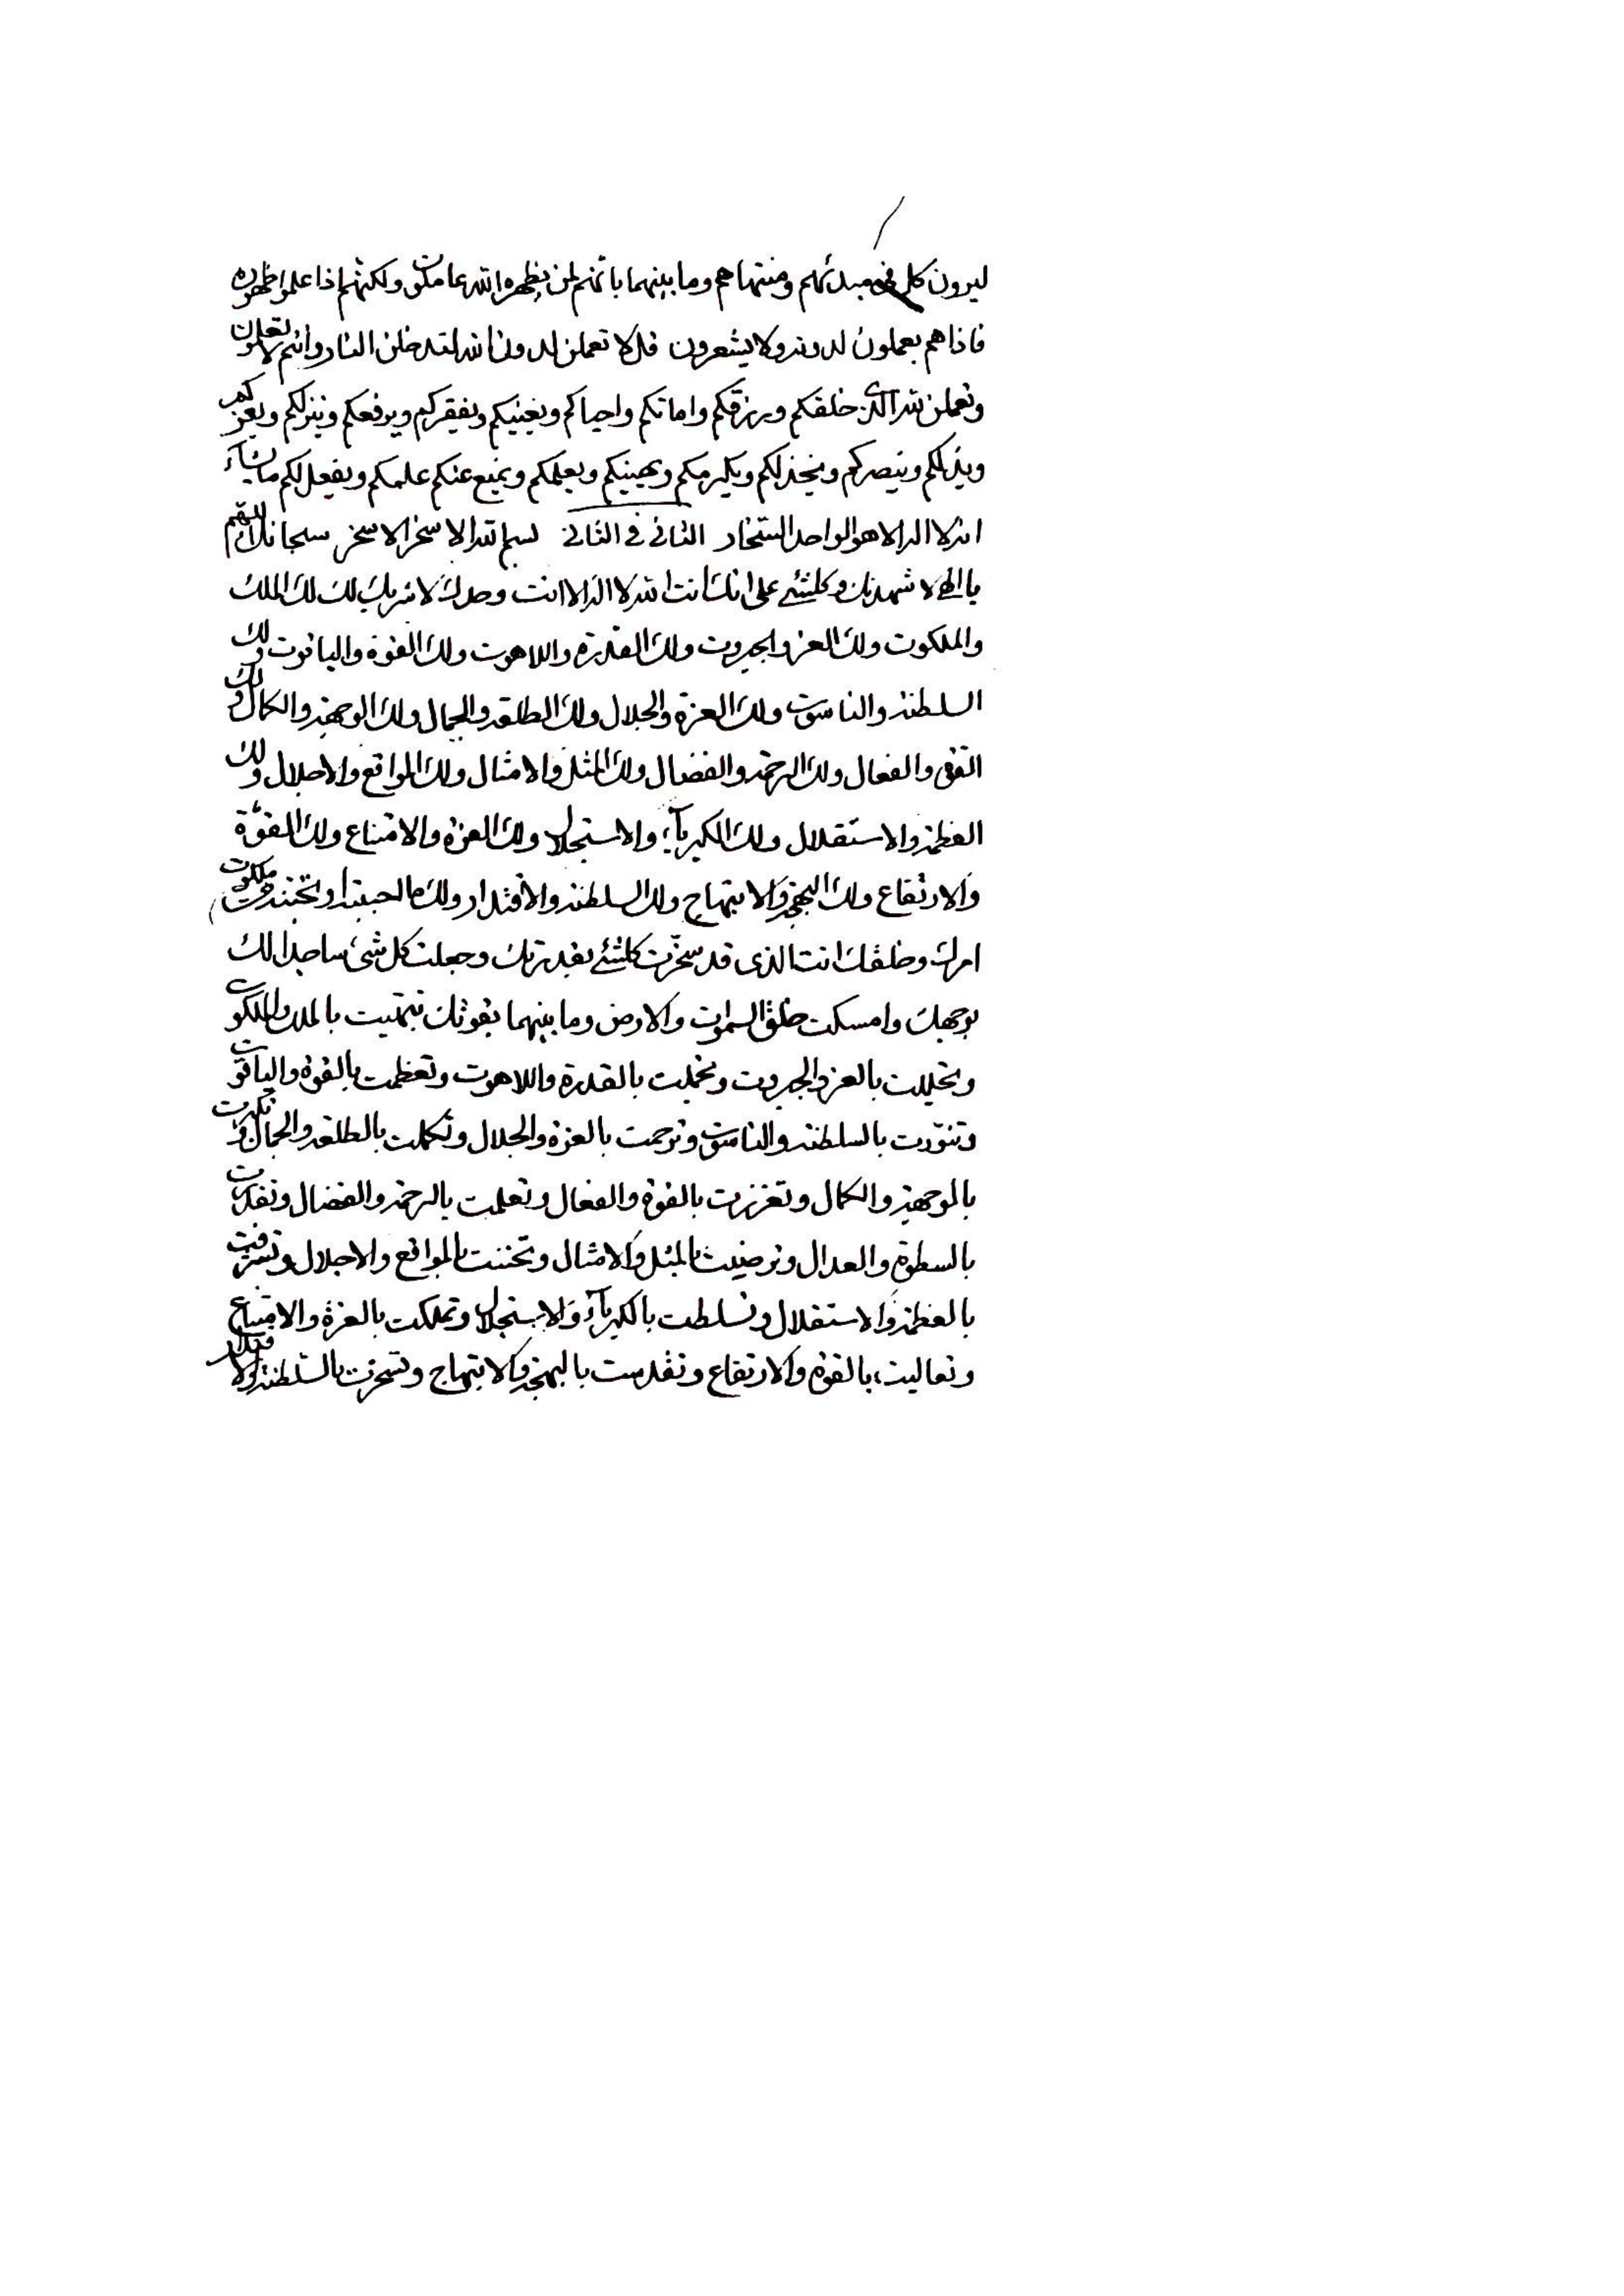 ليرون كل في مبدئهم ومنتهاهم وما بينهما بانهم لمن يظهره الله عاملون ولكنهم اذا علموا ظهوره
فاذا هم يعملون لدونه ولا يشعرون قل لا تعملن لدون الله لتدخلن النار وانتم لا تعلمون
وتعملن لله الذي خلقكم ورزقكم واماتكم واحياكم ويغنيكم ويفقركم ويرفعكم وينزلكم ويعزكم
ويذلكم وينصركم ويخذلكم ويكرمكم ويهينكم ويعلمكم ويمنع عنكم علمكم ويفعل لكم ما يشاء
انه لا اله الا هو الواحد السخار الثاني في الثاني بسم الله الاسخر الاسخر سبحانك اللهم
يا الهي لاشهدنك وكلشئ على انك انت الله لا اله الا انت وحدك لا شريك لك لك الملك
والملكوت ولك العز والجبروت ولك القدرة واللاهوت ولك القوة والياقوت ولك
السلطنة والناسوت ولك العزة والجلال ولك الطلعة والجمال ولك الوجهة والكمال ولك
القوة والفعال ولك الرحمة والفضال ولك المثل والامثال ولك المواقع والاجلال ولك
العظمة والاستقلال ولك الكبرياء والاستجلال ولك العزة والامتناع ولك القوة
والارتفاع ولك البهجة والابتهاج ولك السلطنة والاقتدار ولك ما احببته او تحبنه من ملكوت
امرك وخلقك انت الذى قد سخرت كلشئ بقدرتك وجعلت كل شئ ساجدا لك
بوجهك وامسكت خلق السموات والارض وما بينهما بقوتك تبهيت بالملك والملكوت
وتجللت بالعز والجبروت وتجملت بالقدرة واللاهوت وتعظمت بالقوة والياقوت
وتنورت بالسلطنة والناسوت وترحمت بالعزة والجلال وتكملت بالطلعة والجمال وتكبرت
بالوجهة والكمال وتعززت بالقوة والفعال وتعلمت بالرحمة والفضال وتقدرت
بالسطوة والعدال وترضيت بالمثل والامثال وتحننت بالمواقع والاجلال وتشرفت
بالعظمة والاستقلال وتسلطت بالكبرياء والاستجلال وتملكت بالعزة والامتناع
وتعاليت بالقوة والارتفاع وتقدست بالبهجة والابتهاج وتسخرت بالسلطنة والاقتدار